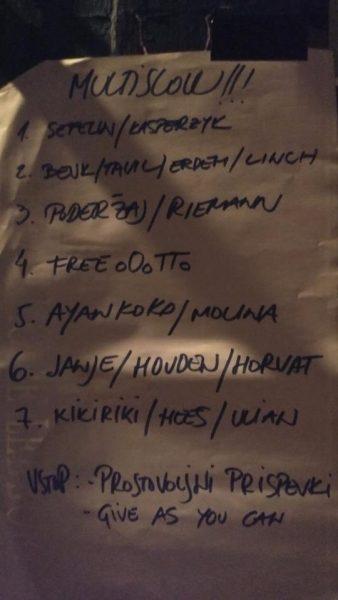 MULTISLOW!!!
1. SETELIN/KASPERZYK
2. BENK/TAVIL/ERDEM/LINCH
3. PODERŽAJ/RIEMANN
4. FREE oOoTTo
5. AYANKOKO/MOLINA
6. JANJE/HOUDEN/HORVAT
7. KIKIRIKI/HOES/ULIAN
VSTOP: - PROSTOVOLJNI PRISPEVKI
- GIVE AS YOU CAN